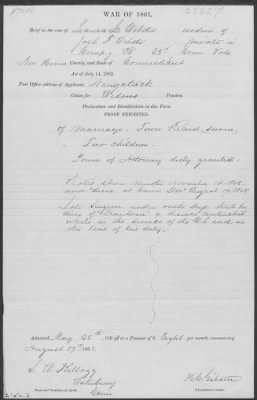 WAR OF 1861.
Brief in the case of Laura G. Webster widow of
Joel F. Webster private in
Company H 23d Conn Vols
New Haven County, and State of Connecticut
Act of July 14, 1862.
Post Office address of Applicant, Naugatuck
Claim for Widows Pension.
Declaration and Identification in due Form.
PROOF EXHIBITED.
of marriage. Town Record, sworn,
Two children.
Power of Attorney duly granted.
Rolls show muster November 14 1862
and died
Late Surgeon under oath says that he
died of a disease contracted
while in the service of the U.S. and in
the line of his duty.
Admitted, May 25th, 186 to a Pension of $ Eight per month, commencing
August 19th 1863.
S. W. Kellogg
Waterbury
Conn
Examining Clerk.